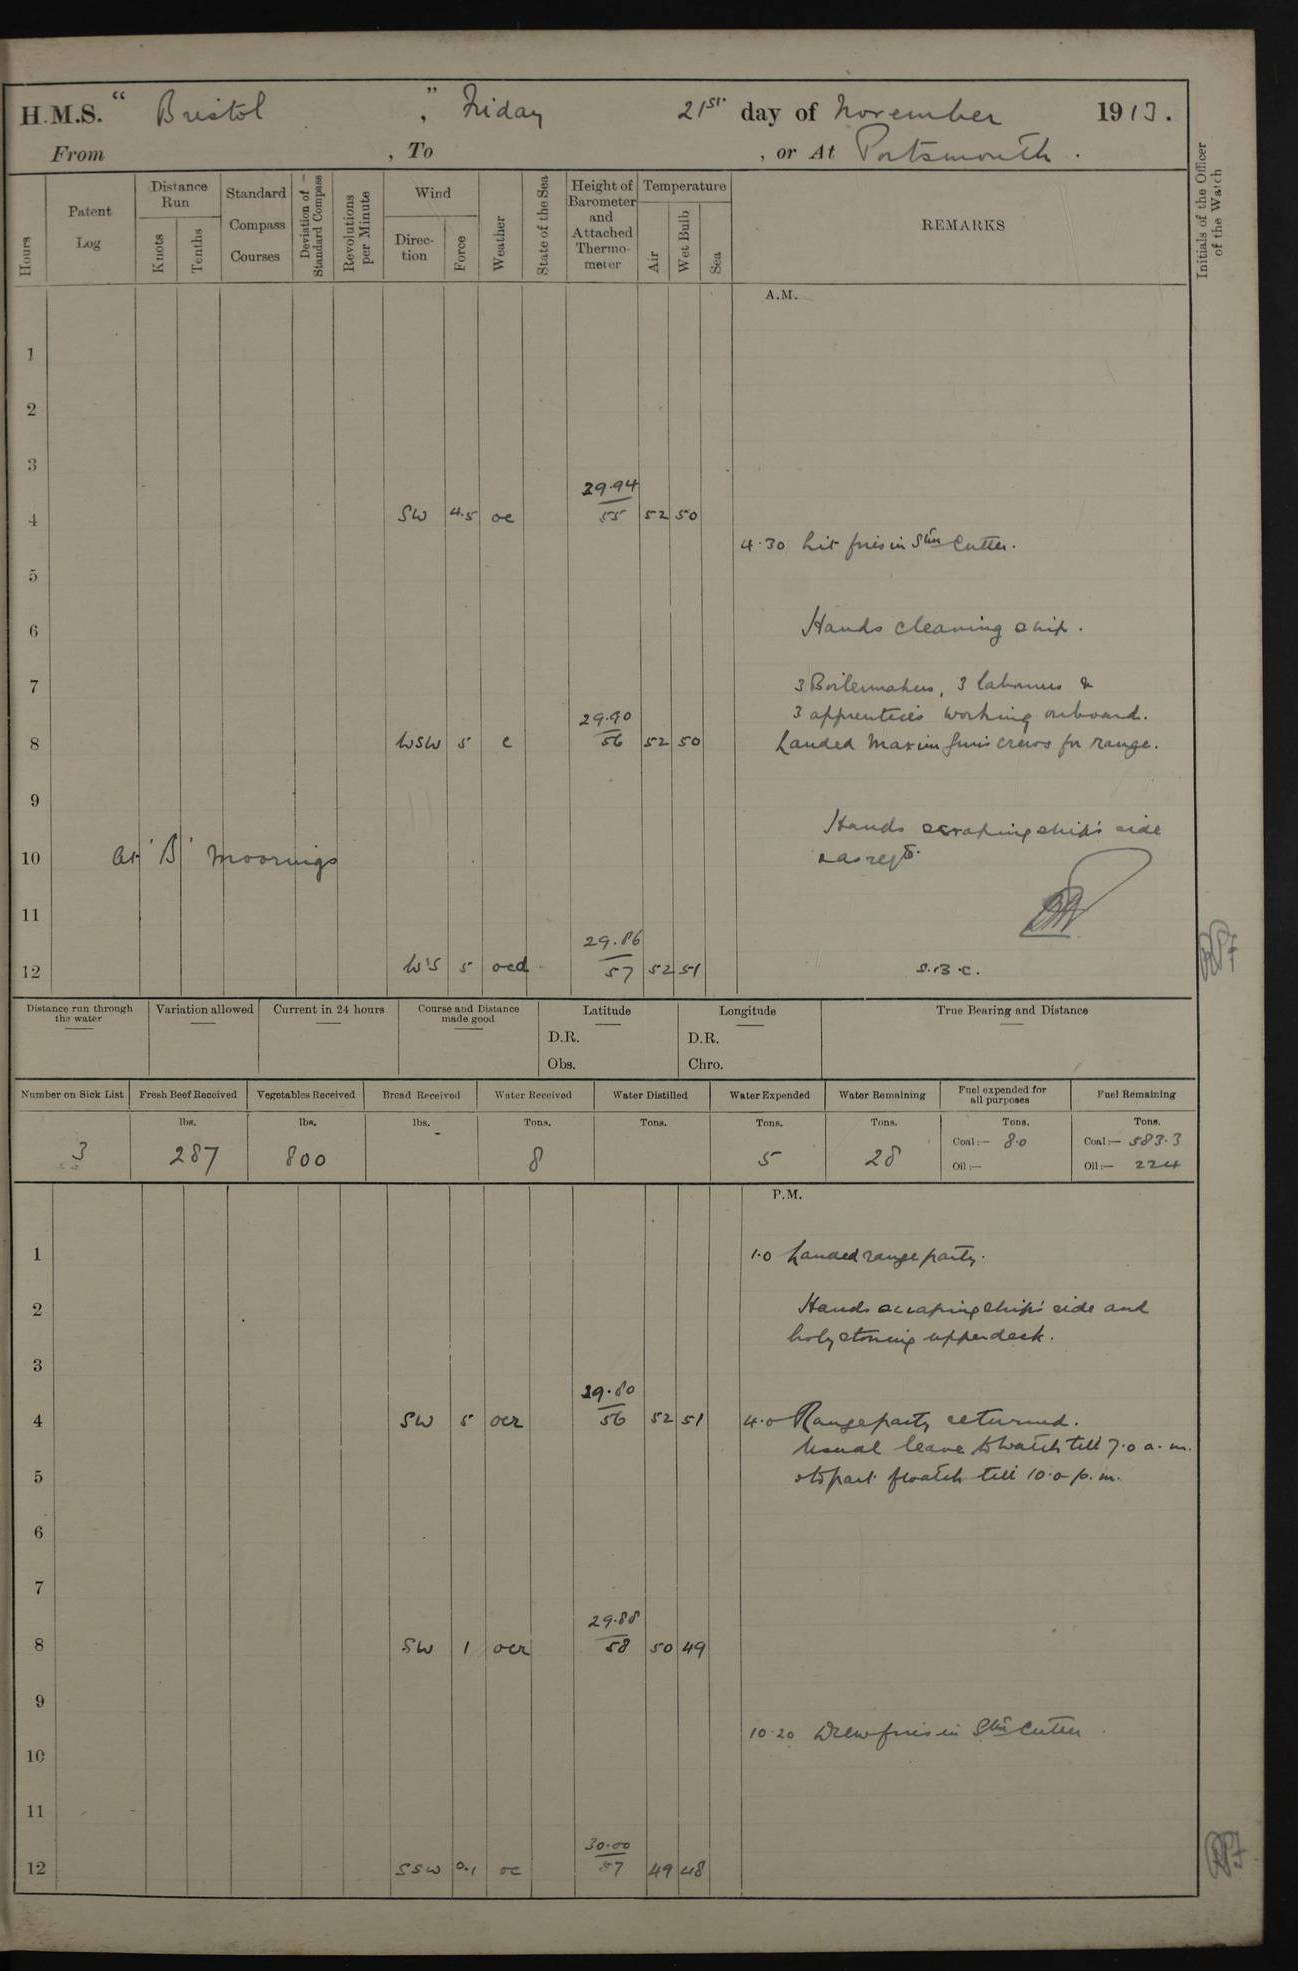 H.M.S. " Bristol ", Friday 21st day of November 1913.
From , To , or At Portsmouth.
Hours
Patent Log
Distance Run
Knots
Tenths
Standard Compass Courses
Deviation of Standard Compass
Revolutions per Minute
Wind
Direction
Force
Weather
State of the Sea
Height of Barometer and Attached Thermometer
Temperature
Air
Wet Bulb
Sea
REMARKS
Initials of the Officer of the Watch
A.M.
1
2
3
4 SW 4.5 oc 29.94 / 55 52 50
4.30 Lit fires in Stm Cutter.
5
6 Hands cleaning ship.
7 3 Boilermakers, 3 labourers &
3 apprentices working onboard.
8 WSW 5 c 29.90 / 56 52 50 Landed Maxim guns crews for range.
9
Hands scraping ship's side
10 At 'B' Moorings & as reqd.
11
12 W'S 5 ocd 29.86 / 57 52 51 S.B.C.
Distance run through the water
Variation allowed
Current in 24 hours
Course and Distance made good
Latitude
D.R.
Obs.
Longitude
D.R.
Chro.
True Bearing and Distance
Number on Sick List
Fresh Beef Received
Vegetables Received
Bread Received
Water Received
Water Distilled
Water Expended
Water Remaining
Fuel expended for all purposes
Fuel Remaining
lbs. lbs. lbs. Tons. Tons. Tons. Tons. Tons. Tons.
3 287 800 8 5 28 Coal:— 8.0 Coal:— 583.3
Oil:— Oil:— 224
P.M.
1 1.0 Landed range party.
2 Hands scraping ship's side and
holystoning upper deck.
3
4 SW 5 ocr 29.80 / 56 52 51 4.0 Range party returned.
Usual leave to watch till 7.0 a.m.
5 & to part of watch till 10.0 p.m.
6
7
8 SW 1 ocr 29.88 / 58 50 49
9
10.20 Drew fires in Stm Cutter
10
11
12 SSW 0.1 oc 30.00 / 57 49 48